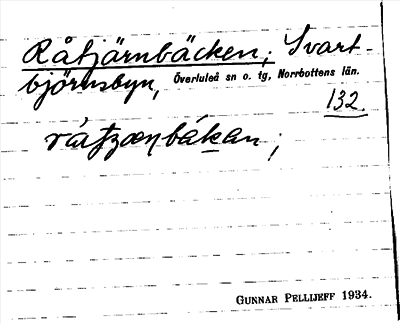 Råtjärnbäcken; Svart-
björnsbyn, Överluleå sn o. tg, Norrbottens län.
132.
GUNNAR PELLIJEFF 1934.